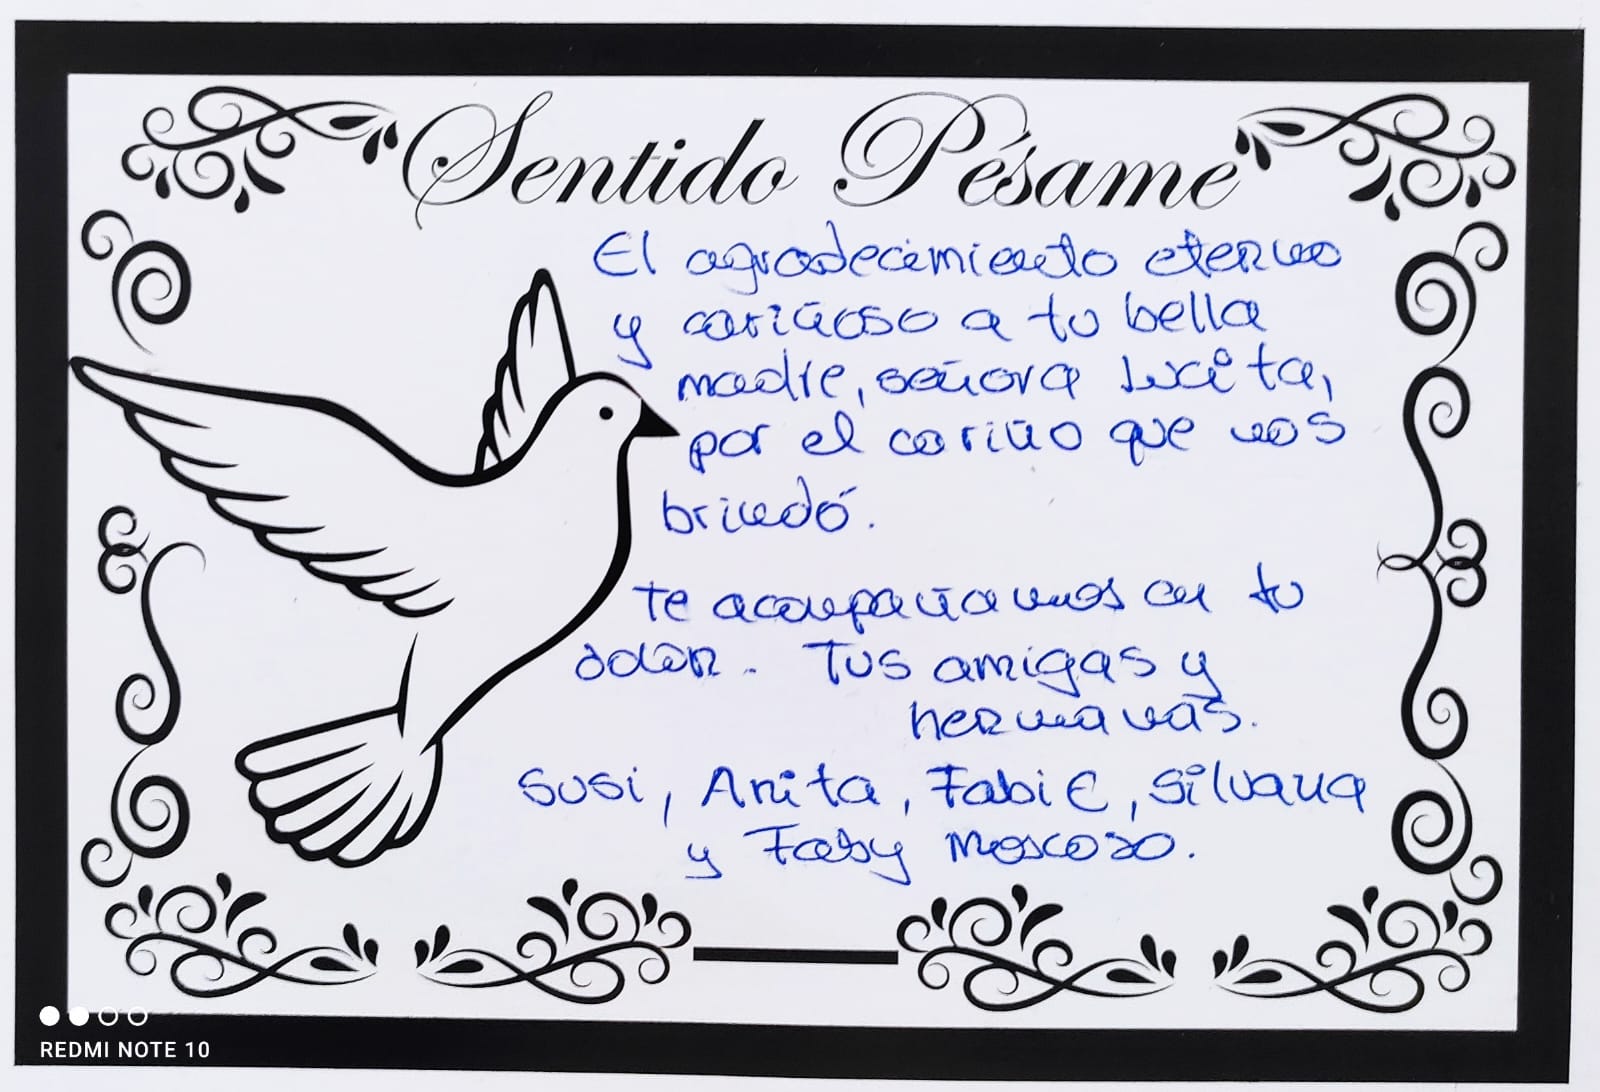 Sentido Pésame
El agradecimiento eterno
y cariñoso a tu bella
madre, señora Lucita,
por el cariño que nos
brindó.
Te acompañamos en tu
dolor. Tus amigas y
hermanas.
Susi, Anita, Fabie, Silvana
y Faby Moscoso.
REDMI NOTE 10